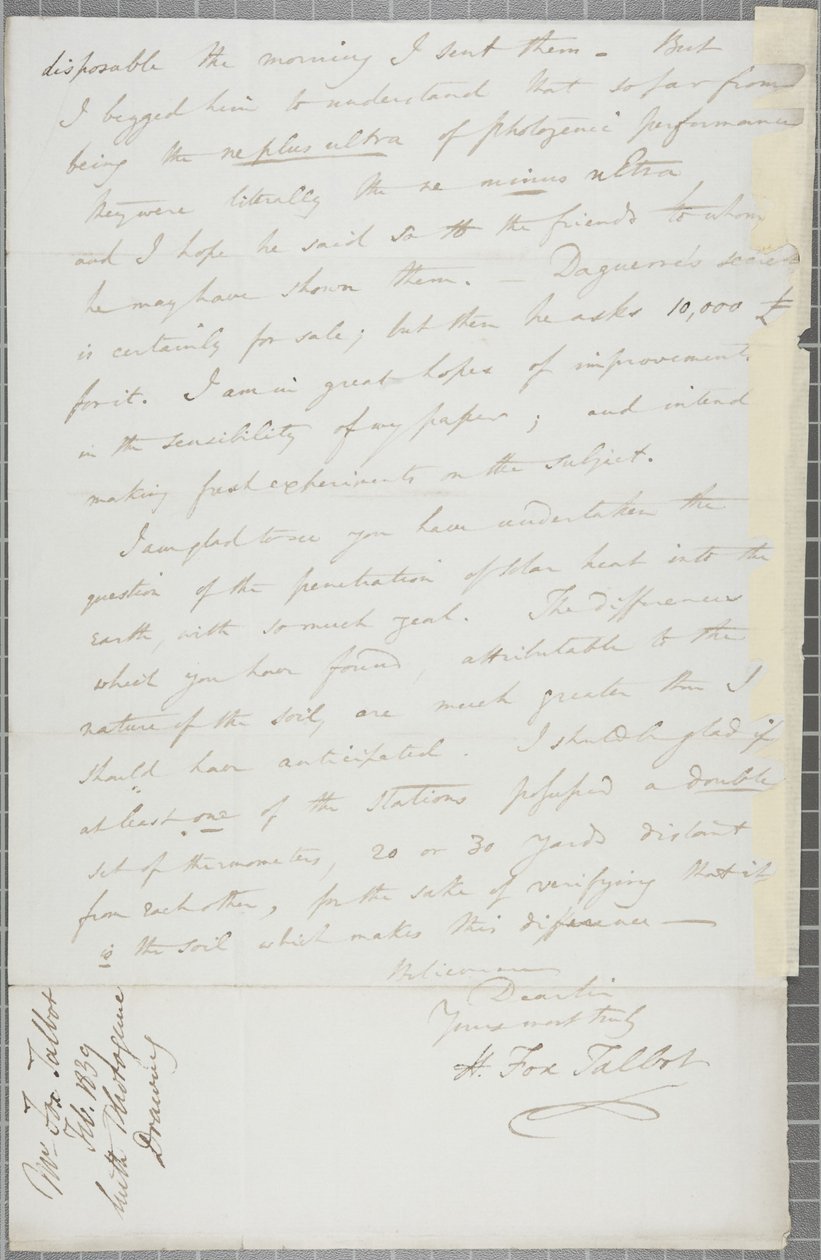 disposable the morning I sent them - But
I begged him to understand that so far from
being the ne plus ultra of photogenic performance
they were literally the ne minus ultra
and I hope he said so to the friends to whom
he may have shown them. — Daguerre's secret
is certainly for sale; but then he asks 10,000 £
for it. I am in great hopes of improvement
in the sensibility of my paper; and intend
making fresh experiments on the subject.
I am glad to see you have undertaken the
question of the penetration of solar heat into the
Earth, with so much zeal. The differences
which you have found, attributable to the
nature of the soil, are much greater than I
should have anticipated. I should be glad if
at least one of the stations possessed a double
set of thermometers, 20 or 30 yards distant
from each other, for the sake of verifying that it
is the soil which makes this difference —
Believe me
Dear Sir
Yours most truly
H. Fox Talbot
Mr Fox Talbot
Feb. 1839
with Photogenic
Drawing